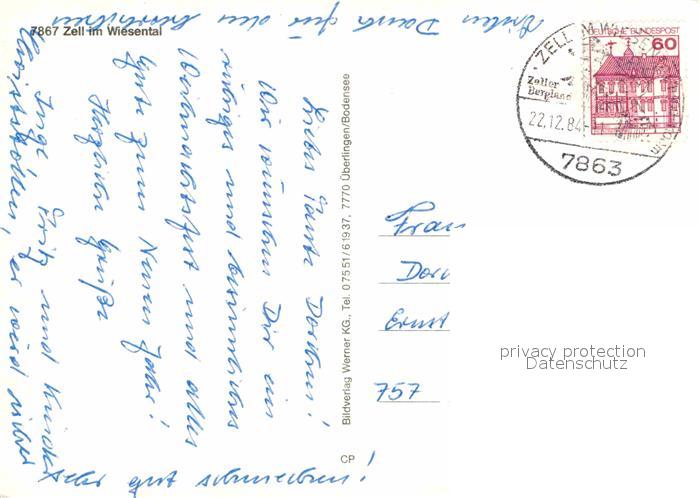 7867 Zell im Wiesental
Vielen Dank für den herrlichen
Christstollen, er wird sicher
sehr gut schmecken!
Liebe Tante Dorchen!
Wir wünschen Dir ein
ruhiges und besinnliches
Weihnachtsfest und alles
Gute zum Neuen Jahr!
Herzliche Grüße
Inge, Fritz und Kinder
Bildverlag Werner KG., Tel. 07551/61937, 7770 Überlingen/Bodensee
CP
DEUTSCHE BUNDESPOST
60
ZELL IM
Zeller
Bergland
22.12.84
7863
Frau
Ernst
757
privacy protection
Datenschutz